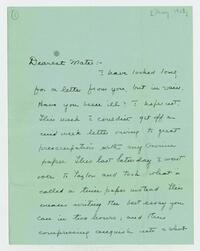 1
Dearest Mater:-
I have looked long
for a letter from you, but in vain.
Have you been ill? I hope not.
This week I couldn't get off an
mid week letter owing to great
preoccupation with my
paper. Then last Saturday I went
over to Taylor and took what is
called a time paper instead. This
means writing the best essay you
can in two hours, and this
compressing anguish into a short